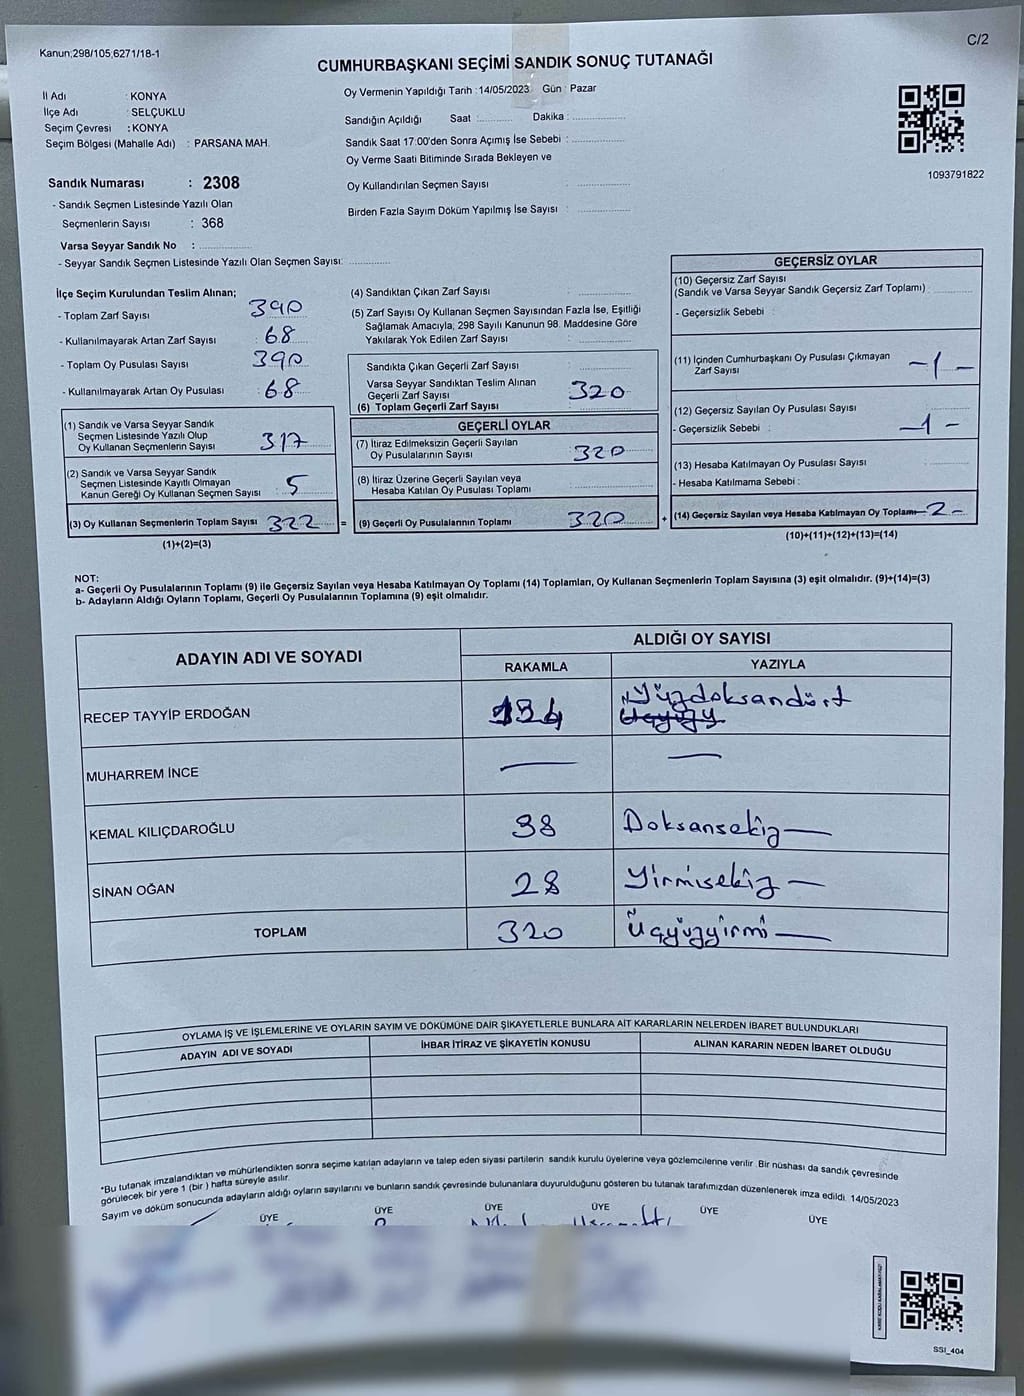 Kanun;298/105;6271/18-1
C/2
CUMHURBAŞKANI SEÇİMİ SANDIK SONUÇ TUTANAĞI
İl Adı : KONYA
İlçe Adı : SELÇUKLU
Seçim Çevresi : KONYA
Seçim Bölgesi (Mahalle Adı) : PARSANA MAH.
Sandık Numarası : 2308
- Sandık Seçmen Listesinde Yazılı Olan
Seçmenlerin Sayısı : 368
Varsa Seyyar Sandık No :
- Seyyar Sandık Seçmen Listesinde Yazılı Olan Seçmen Sayısı:
Oy Vermenin Yapıldığı Tarih : 14/05/2023 Gün : Pazar
Sandığın Açıldığı Saat : Dakika :
Sandık Saat 17:00'den Sonra Açımış İse Sebebi :
Oy Verme Saati Bitiminde Sırada Bekleyen ve
Oy Kullandırılan Seçmen Sayısı :
Birden Fazla Sayım Döküm Yapılmış İse Sayısı :
1093791822
İlçe Seçim Kurulundan Teslim Alınan;
- Toplam Zarf Sayısı : 390
- Kullanılmayarak Artan Zarf Sayısı : 68
- Toplam Oy Pusulası Sayısı : 390
- Kullanılmayarak Artan Oy Pusulası : 68
(1) Sandık ve Varsa Seyyar Sandık
Seçmen Listesinde Yazılı Olup
Oy Kullanan Seçmenlerin Sayısı : 317
(2) Sandık ve Varsa Seyyar Sandık
Seçmen Listesinde Kayıtlı Olmayan
Kanun Gereği Oy Kullanan Seçmen Sayısı : 5
(3) Oy Kullanan Seçmenlerin Toplam Sayısı 322
(1)+(2)=(3)
(4) Sandıktan Çıkan Zarf Sayısı :
(5) Zarf Sayısı Oy Kullanan Seçmen Sayısından Fazla İse, Eşitliği
Sağlamak Amacıyla; 298 Sayılı Kanunun 98. Maddesine Göre
Yakılarak Yok Edilen Zarf Sayısı :
Sandıkta Çıkan Geçerli Zarf Sayısı :
Varsa Seyyar Sandıktan Teslim Alınan
Geçerli Zarf Sayısı
(6) Toplam Geçerli Zarf Sayısı : 320
GEÇERLİ OYLAR
(7) İtiraz Edilmeksizin Geçerli Sayılan
Oy Pusulalarının Sayısı : 320
(8) İtiraz Üzerine Geçerli Sayılan veya
Hesaba Katılan Oy Pusulası Toplamı :
= (9) Geçerli Oy Pusulalarının Toplamı 320 +
GEÇERSİZ OYLAR
(10) Geçersiz Zarf Sayısı
(Sandık ve Varsa Seyyar Sandık Geçersiz Zarf Toplamı) :
- Geçersizlik Sebebi :
(11) İçinden Cumhurbaşkanı Oy Pusulası Çıkmayan
Zarf Sayısı -1-
(12) Geçersiz Sayılan Oy Pusulası Sayısı
- Geçersizlik Sebebi : -1-
(13) Hesaba Katılmayan Oy Pusulası Sayısı
- Hesaba Katılmama Sebebi :
(14) Geçersiz Sayılan veya Hesaba Katılmayan Oy Toplamı -2-
(10)+(11)+(12)+(13)=(14)
NOT:
a- Geçerli Oy Pusulalarının Toplamı (9) ile Geçersiz Sayılan veya Hesaba Katılmayan Oy Toplamı (14) Toplamları, Oy Kullanan Seçmenlerin Toplam Sayısına (3) eşit olmalıdır. (9)+(14)=(3)
b- Adayların Aldığı Oyların Toplamı, Geçerli Oy Pusulalarının Toplamına (9) eşit olmalıdır.
ADAYIN ADI VE SOYADI
ALDIĞI OY SAYISI
RAKAMLA YAZIYLA
RECEP TAYYİP ERDOĞAN 194 Yüzdoksandört
MUHARREM İNCE — —
KEMAL KILIÇDAROĞLU 98 Doksansekiz—
SİNAN OĞAN 28 Yirmisekiz—
TOPLAM 320 Üçyüzyirmi—
OYLAMA İŞ VE İŞLEMLERİNE VE OYLARIN SAYIM VE DÖKÜMÜNE DAİR ŞİKAYETLERLE BUNLARA AİT KARARLARIN NELERDEN İBARET BULUNDUKLARI
ADAYIN ADI VE SOYADI İHBAR İTİRAZ VE ŞİKAYETİN KONUSU ALINAN KARARIN NEDEN İBARET OLDUĞU
*Bu tutanak imzalandıktan ve mühürlendikten sonra seçime katılan adayların ve talep eden siyasi partilerin sandık kurulu üyelerine veya gözlemcilerine verilir. Bir nüshası da sandık çevresinde
görülecek bir yere 1 (bir ) hafta süreyle asılır.
Sayım ve döküm sonucunda adayların aldığı oyların sayılarını ve bunların sandık çevresinde bulunanlara duyurulduğunu gösteren bu tutanak tarafımızdan düzenlenerek imza edildi. 14/05/2023
ÜYE ÜYE ÜYE ÜYE ÜYE ÜYE
SSI_404